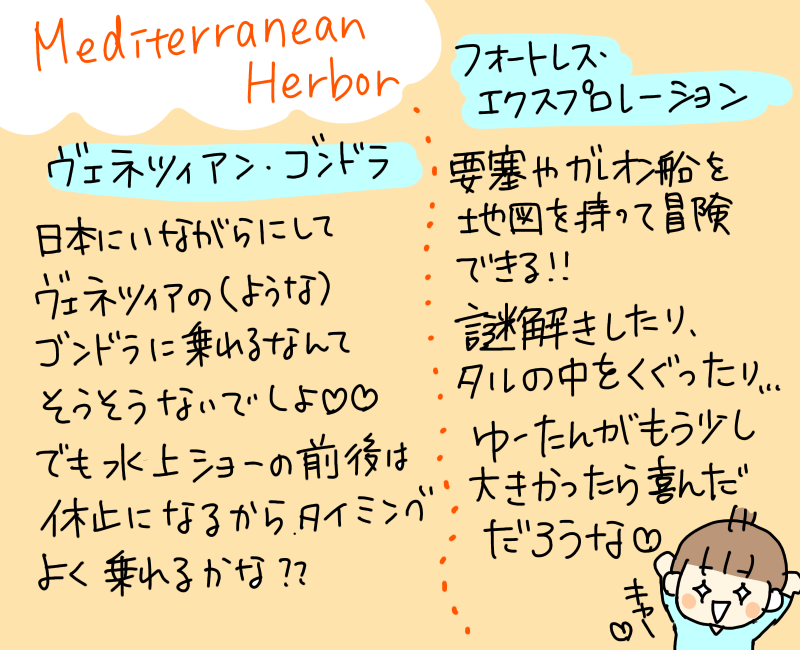 Mediterranean
Herbor
ヴェネツィアン・ゴンドラ
日本にいながらにして
ヴェネツィアの(ような)
ゴンドラに乗れるなんて
そうそうないでしょ♡♡
でも水上ショーの前後は
休止になるから、タイミング
よく乗れるかな??
フォートレス・
エクスプロレーション
要塞やガレオン船を
地図を持って冒険
できる!!
謎解きしたり、
タルの中をくぐったり…
ゆーたんがもう少し
大きかったら喜んだ
だろうな♡
キャー♡